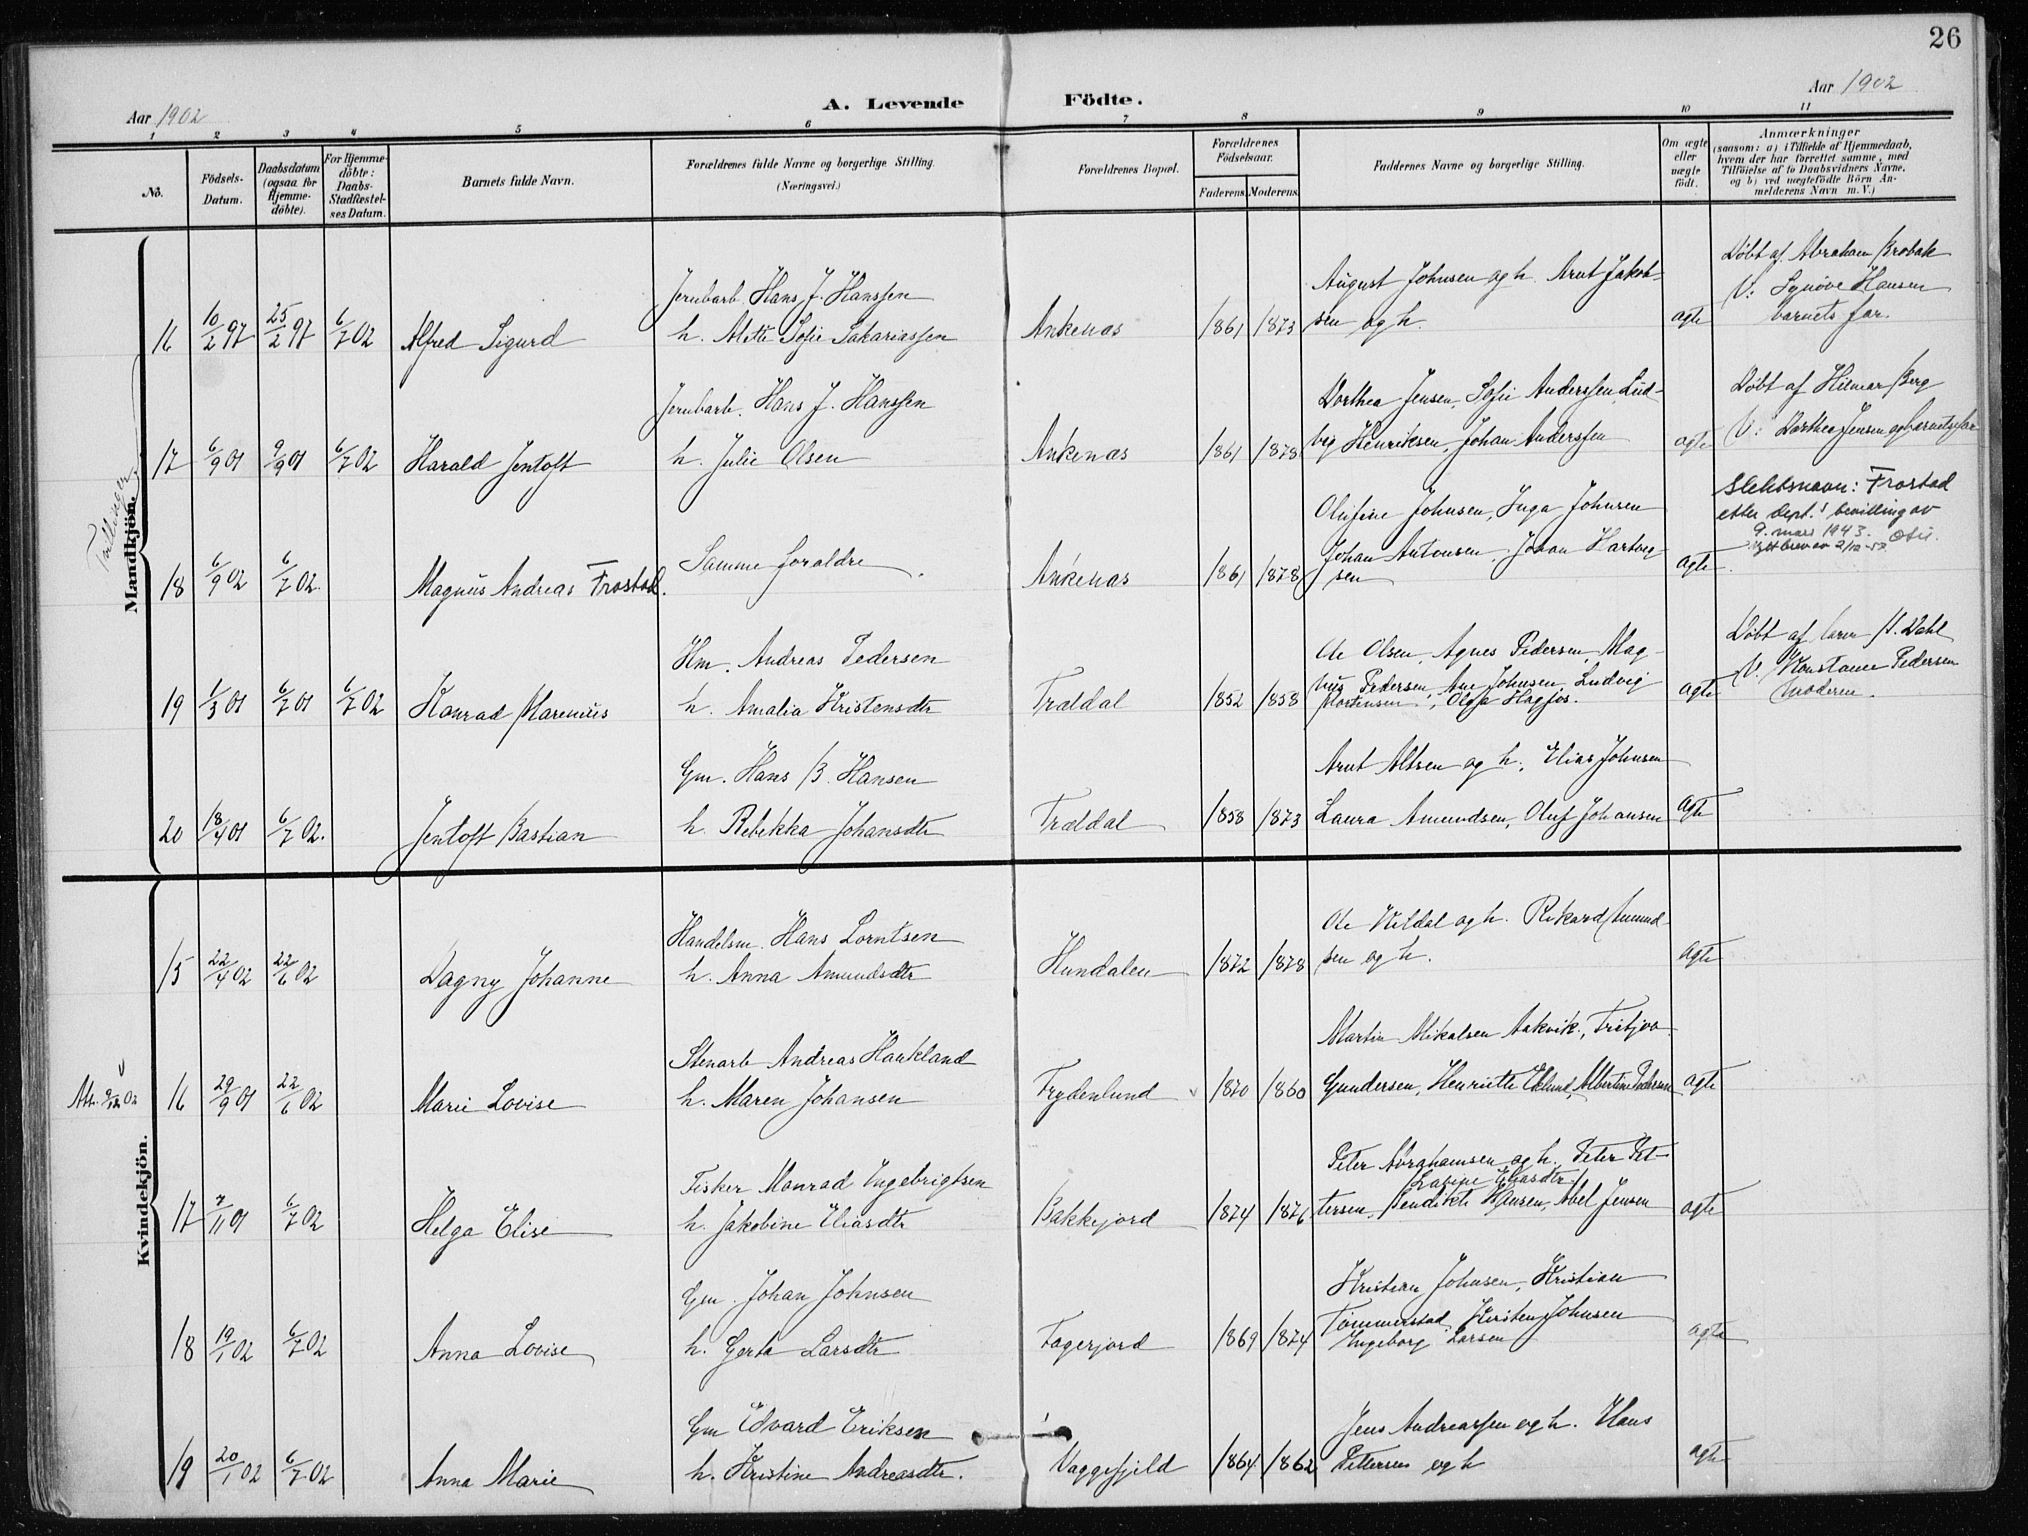 26
Aar 1902
A. Levende Födte.
Aar 1902
1 2 3 4 5 6 7 8 9 10 11
No.
Födsels-Datum.
Daabsdatum (ogsaa for Hjemme-döbte).
For Hjemme-döbte: Daabs-Stadfæstel-ses Datum.
Barnets fulde Navn.
Forældrenes fulde Navne og borgerlige Stilling. (Næringsvei.)
Forældrenes Bopæl.
Forældrenes Födselsaar.
Faderens. Moderens.
Faddernes Navne og borgerlige Stilling.
Om ægte eller uægte födt.
Anmærkninger
(saasom: a) i Tilfælde af Hjemmedaab,
hvem der har forrettet samme, med
Tilföielse af to Daabsvidners Navne,
og b) ved uægtefödte Börn An-
melderens Navn m. V.)
Mandkjön.
Tvillinger
Jernbarb. Hans J. Hanssen
16 10/2 97 25/2 97 6/7 02 Alfred Sigurd h. Mette Sofie Sakariassen Ankenæs 1861 1873
August Johnsen og h. Arnt Jakob-
sen og h. ægte
Døbt af Abraham Brobak
V: Synøve Hansen
barnets far.
Jernbarb. Hans J. Hanssen
17 6/9 01 9/9 01 6/7 02 Harald Jentoft h. Julie Olsen Ankenæs 1861 1878
Dorthea Jensen, Sofie Anderssen, Lud-
vig Henriksen, Johan Anderssen ægte
Døbt af Hilmar Berg
V: Dorthea Jensen og barnets far
18 6/9 02 6/7 02. Magnus Andreas Frostad. Samme foraldre. Ankenæs 1861 1878
Olufine Johnsen, Inga Johnsen
Johan Antonsen, Johan Hartvig-
sen ægte.
Slektsnavn: Frostad
etter dept.s bevilling av
9. mars 1943.
Hm. Andreas Pedersen
19 1/3 01 6/7 01 6/7 02 Konrad Marenius h. Amalia Kristensdtr Trældal 1852 1858
Ole Olsen, Agnes Pedersen, Mag-
nus Pedersen, Ane Johnsen, Ludvig
Mortensen, Olga Hagfos. ægte
Døbt af lærer P. Dahl
V. Konstanse Pedersen
Moderen.
Gm. Hans B. Hansen
20 18/4 01 6/7 02. Jentoft Bastian h. Rebekka Johansdtr Trældal 1858 1873
Arnt Altsen og h. Elias Johnsen
Laura Amundsen, Oluf Johansen ægte
Kvindekjön.
Handelsm. Hans Lorntsen
15 22/4 02 22/6 02 Dagny Johanne h. Anna Amundsdtr Hundalen 1872 1878
Ole Vildal og h. Rikard Amund-
sen og h. ægte
Stenarb Andreas Haukland
Att. 9/12 02 16 29/9 01 22/6 02 Marie Lovise h. Maren Johansen Frydenlund 1870 1860
Martin Mikalsen Aakvik, Tritjva
Gundersen, Henriette Eklund, Albertine Pedersen ægte
Fisker Monrad Ingebrigtsen
17 7/11 01 6/7 02 Helga Elise h. Jakobine Eliasdtr Bakkejord 1874 1876
Peter Abrahamsen og h. Peter Pet-
Lavine Eliasdtr
tersen, Bendikte Hansen, Abel Jensen ægte
Gm. Johan Johnsen
18 19/1 02 6/7 02 Anna Lovise h. Gerta Larsdtr Fagerjord 1869 1874
Kristian Johnsen, Kristian
Tømmerstad, Kirsten Johnsen
Ingeborg Larsen ægte
Gm Edvard Eriksen
19 20/1 02 6/7 02 Anna Marie h. Kristine Andreasdtr. Vaggefjeld 1864 1862
Jens Andreassen og h. Hans
Pettersen og h ægte